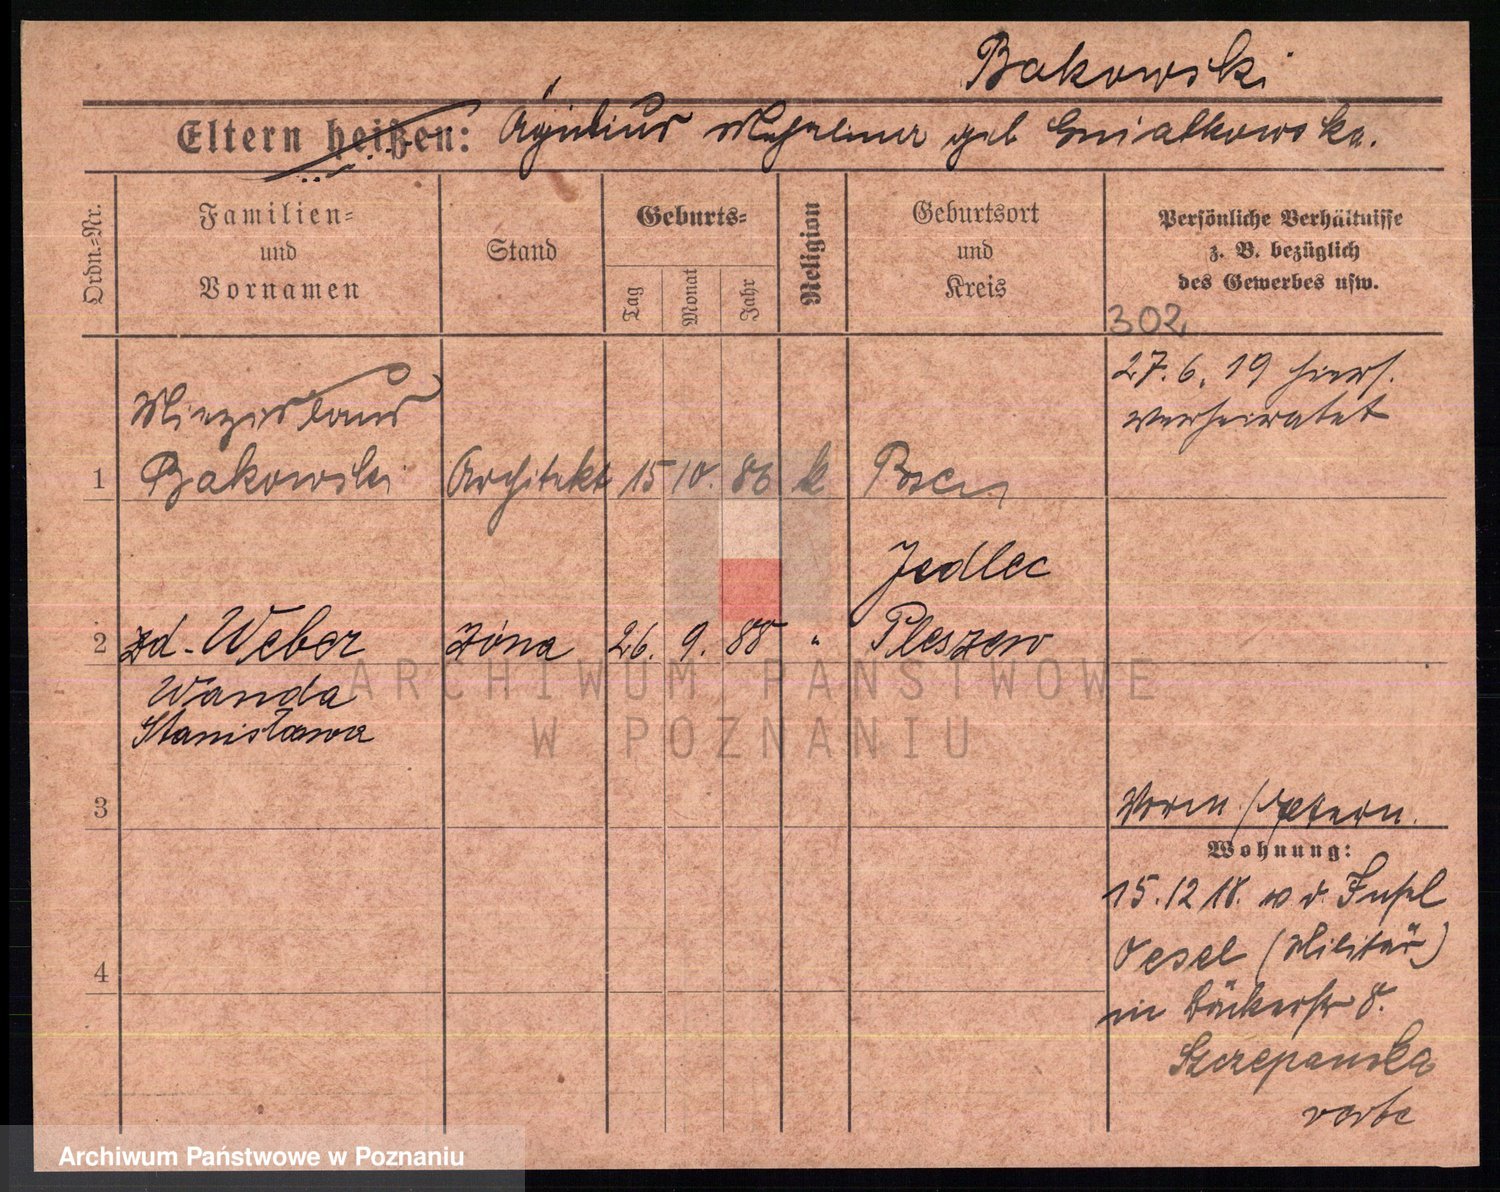 Bakowski
Eltern heißen: geb Gniatkowska.
Ordn.-Nr.
Familien-
und
Vornamen
Stand
Geburts-
Tag
Monat
Jahr
Religion
Geburtsort
und
Kreis
Persönliche Verhältnisse
z. B. bezüglich
des Gewerbes usw.
302
27. 6. 19 hiers.
verheiratet
Miezislaus
1 Bakowski Architekt 15 10. 86 k Posen
Jedlec
2 zd. Weber żóna 26. 9. 88 " Pleszew
Wanda
Stanisława
3
Wohnung:
15. 12 18. v d. Insel
Oesel (Militär)
in Bäckerstr 8.
4
Szczepanska
ARCHIWUM PAŃSTWOWE
W POZNANIU
Archiwum Państwowe w Poznaniu